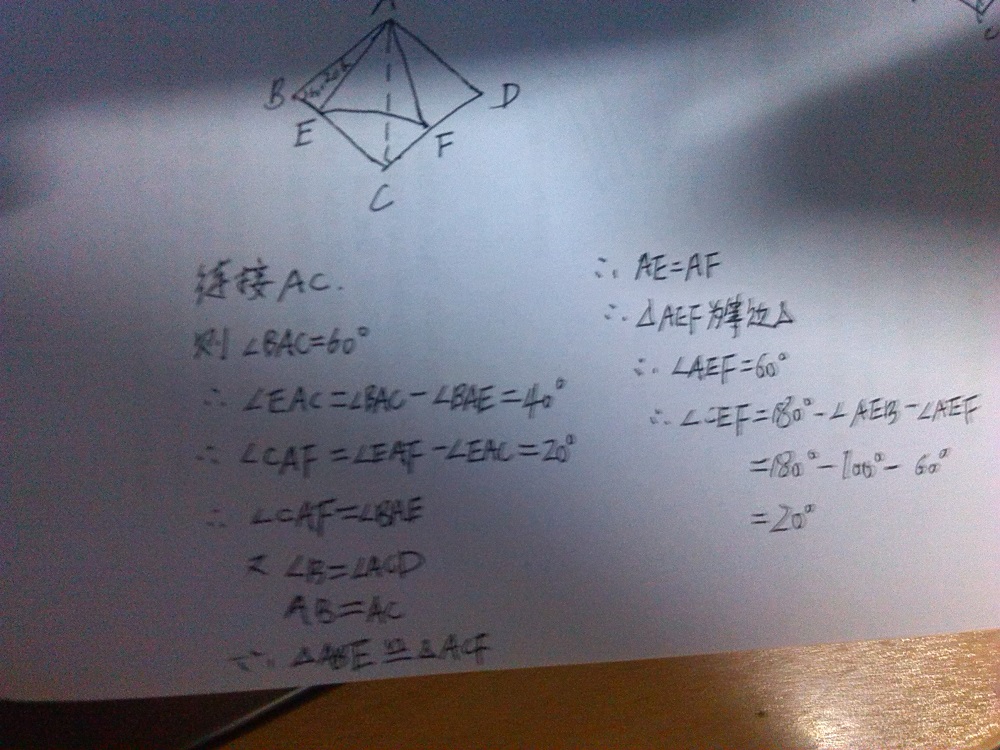 A
B
D
E
F
C
连接AC.
则∠BAC=60°
∴ ∠EAC=∠BAC-∠BAE=40°
∴ ∠CAF=∠EAF-∠EAC=20°
∴ ∠CAF=∠BAE
又 ∠B=∠ACD
AB=AC
∴ △ABE≌△ACF
∴ AE=AF
∴ △AEF为等边△
∴ ∠AEF=60°
∴ ∠CEF=180°-∠AEB-∠AEF
=180°-100°-60°
=20°